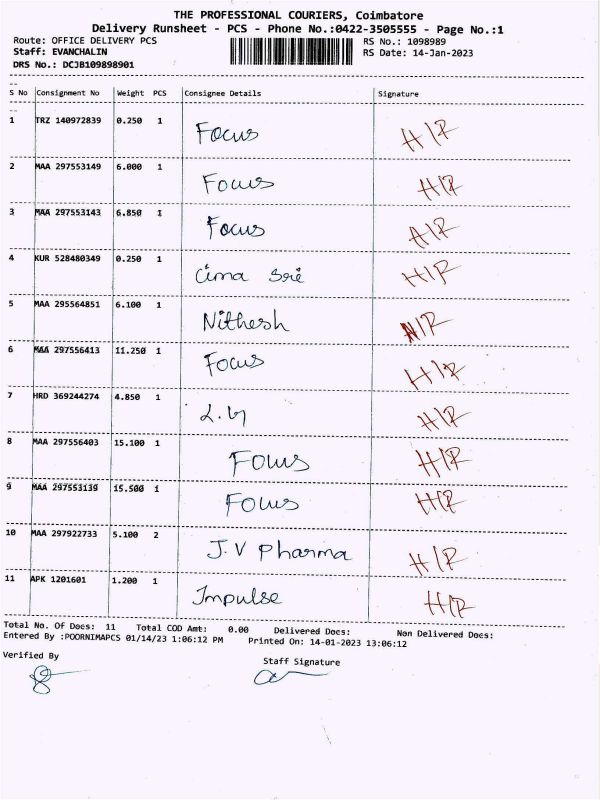 THE PROFESSIONAL COURIERS, Coimbatore
Delivery Runsheet - PCS - Phone No.:0422-3505555 - Page No.:1
Route: OFFICE DELIVERY PCS RS No.: 1098989
Staff: EVANCHALIN RS Date: 14-Jan-2023
DRS No.: DCJB109898901
S No Consignment No Weight PCS Consignee Details Signature
1 TRZ 140972839 0.250 1 Focus H/R
2 MAA 297553149 6.000 1 Focus H/R
3 MAA 297553143 6.850 1 Focus H/R
4 KUR 528480349 0.250 1 Cima Sri H/R
5 MAA 295564851 6.100 1 Nithesh H/R
6 MAA 297556413 11.250 1 Focus H/R
7 HRD 369244274 4.850 1 H/R
8 MAA 297556403 15.100 1 Focus H/R
9 MAA 297553139 15.500 1 Focus H/R
10 MAA 297922733 5.100 2 J.V Pharma H/R
11 APK 1201601 1.200 1 Impulse H/R
Total No. Of Docs: 11 Total COD Amt: 0.00 Delivered Docs: Non Delivered Docs:
Entered By :POORNIMAPCS 01/14/23 1:06:12 PM Printed On: 14-01-2023 13:06:12
Verified By Staff Signature